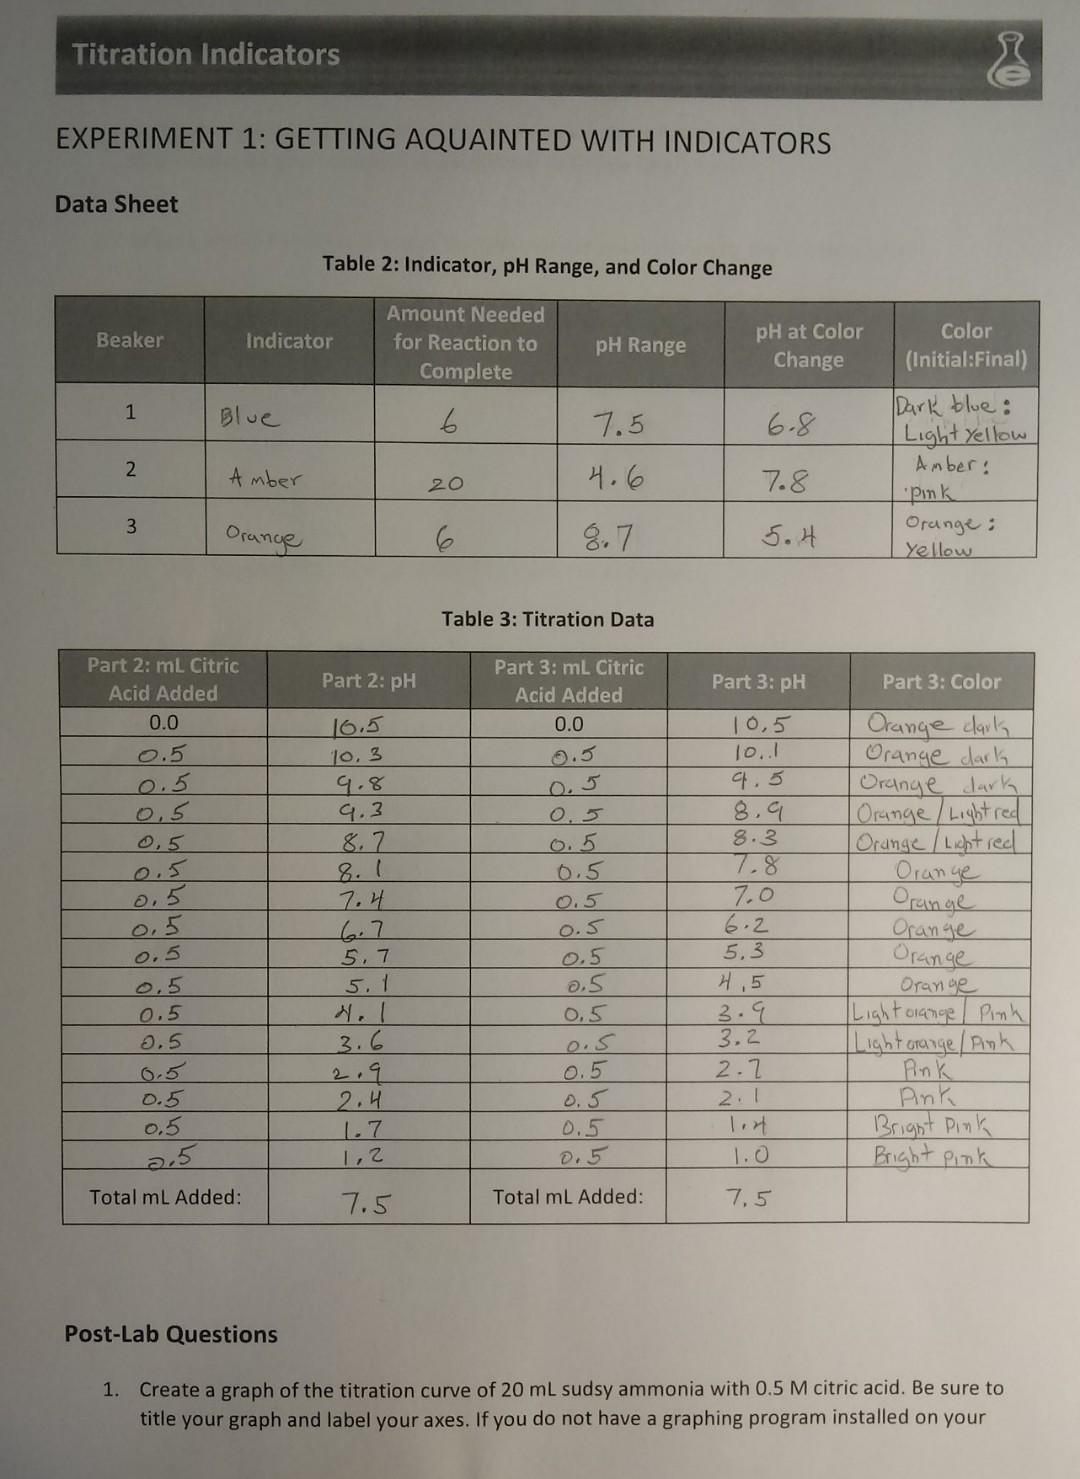 Titration Indicators
e
EXPERIMENT 1: GETTING AQUAINTED WITH INDICATORS
Data Sheet
Table 2: Indicator, pH Range, and Color Change
Beaker Indicator Amount Needed for Reaction to Complete pH Range pH at Color Change Color (Initial:Final)
1 Blue 6 7.5 6.8 Dark blue: Light Yellow
2 Amber 20 4.6 7.8 Amber: pink
3 Orange 6 8.7 5.4 Orange: Yellow
Table 3: Titration Data
Part 2: mL Citric Acid Added Part 2: pH Part 3: mL Citric Acid Added Part 3: pH Part 3: Color
0.0 10.5 0.0 10.5 Orange dark
0.5 10.3 0.5 10.1 Orange dark
0.5 9.8 0.5 9.5 Orange dark
0.5 9.3 0.5 8.9 Orange / Light red
0.5 8.7 0.5 8.3 Orange / Light red
0.5 8.1 0.5 7.8 Orange
0.5 7.4 0.5 7.0 Orange
0.5 6.7 0.5 6.2 Orange
0.5 5.7 0.5 5.3 Orange
0.5 5.1 0.5 4.5 Orange
0.5 4.1 0.5 3.9 Light orange / Pink
0.5 3.6 0.5 3.2 Light orange / Pink
0.5 2.9 0.5 2.7 Pink
0.5 2.4 0.5 2.1 Pink
0.5 1.7 0.5 1.4 Bright Pink
0.5 1.2 0.5 1.0 Bright pink
Total mL Added: 7.5 Total mL Added: 7.5
Post-Lab Questions
1. Create a graph of the titration curve of 20 mL sudsy ammonia with 0.5 M citric acid. Be sure to
title your graph and label your axes. If you do not have a graphing program installed on your